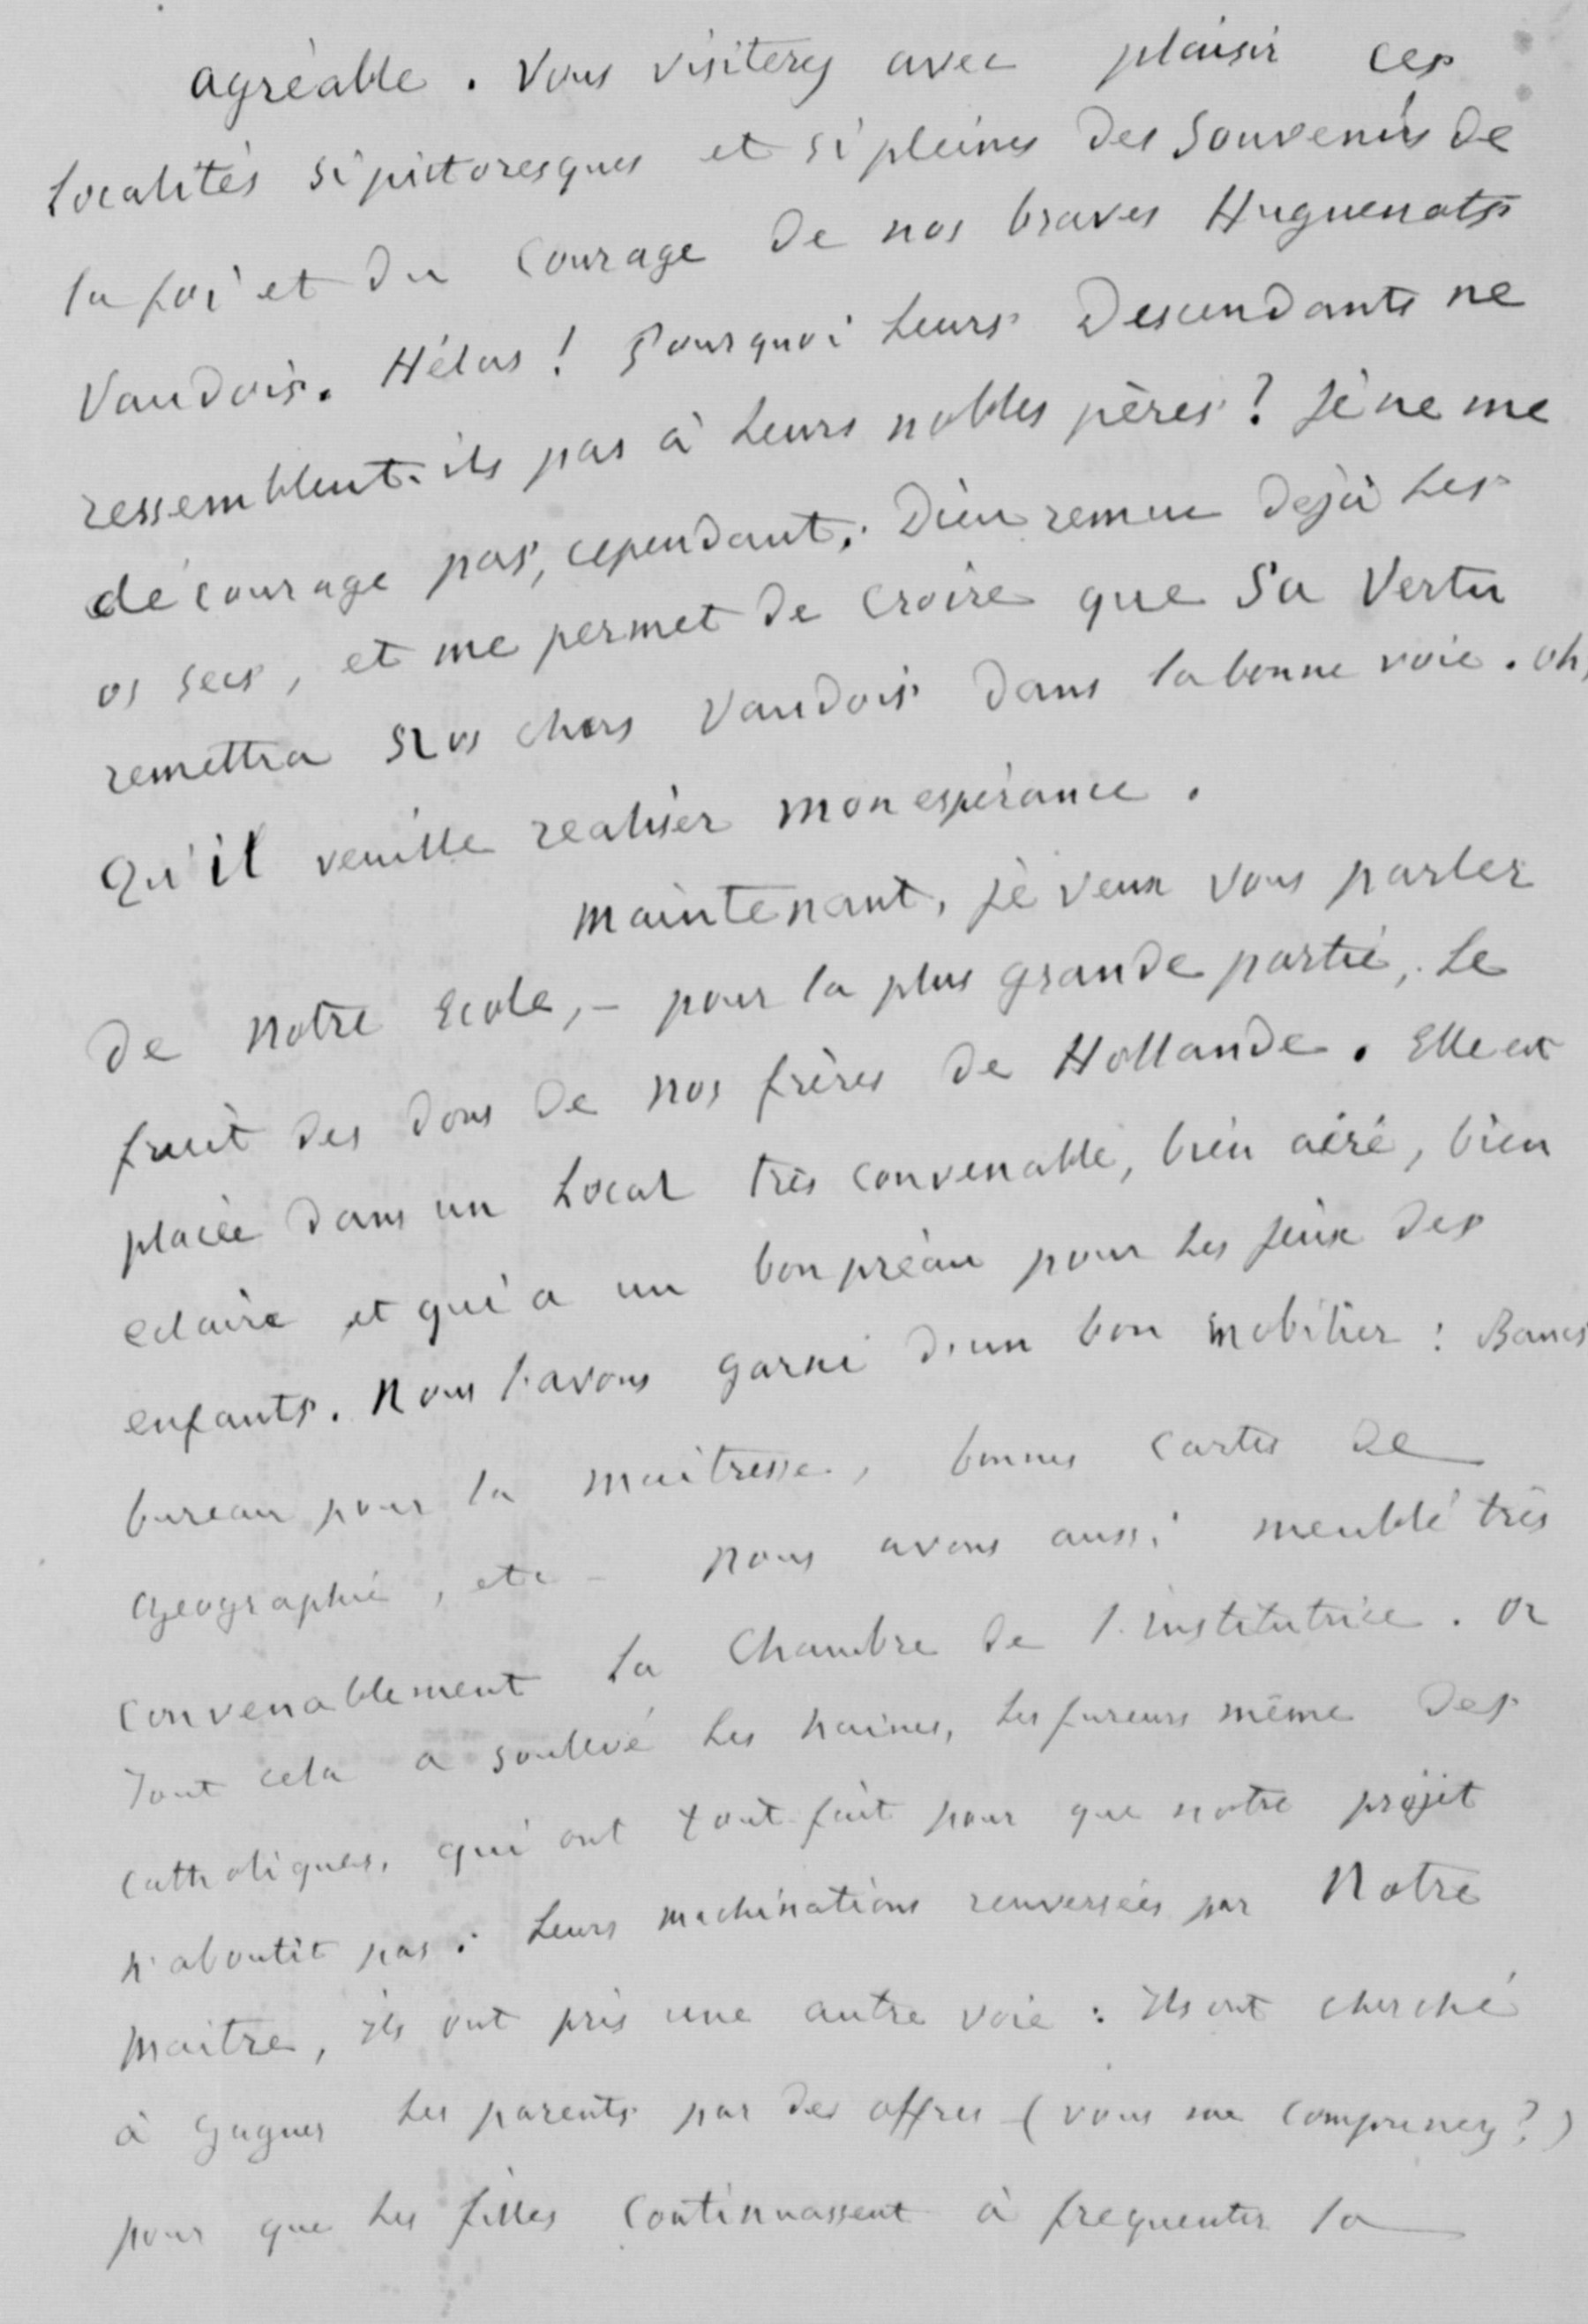 agréable. Vous visiterez avec plaisir ces
localités si pittoresques et si pleines des souvenirs de
la foi et du courage de nos braves Huguenots
Vaudois. Hélas! Pourquoi leurs descendants ne
ressemblent-ils pas à leurs nobles pères? Je ne me
décourage pas, cependant; Dieu remue dejà les
os secs, et me permet de croire que Sa Vertu
remettra nos chers Vaudois dans la bonne voie. Oh,
Qu'il veuille realiser mon espérance.
Maintenant, je veux vous parler
de Notre Ecole, - pour la plus grande partie, le
fruit des dons de nos frères de Hollande. Elle est
placée dans un local très convenable, bien aéré, bien
eclairé et qui a un bon préau pour les jeux des
enfants. Nous l'avons garni d'un bon mobilier: Bancs
bureau pour la maitresse, bonnes cartes de
Geographie, etc - nous avons aussi meublé très
convenablement la Chambre de l'institutrice. Or
Tout cela a soulevé les haines, les fureurs même des
catholiques, qui ont tout fait pour que notre projet
n'aboutit pas; leurs machinations renversées par Notre
Maitre, ils ont pris une autre voie: Ils ont cherché
à gagner les parents par des offres (vous me comprenez?)
pour que les filles continuassent à frequenter la